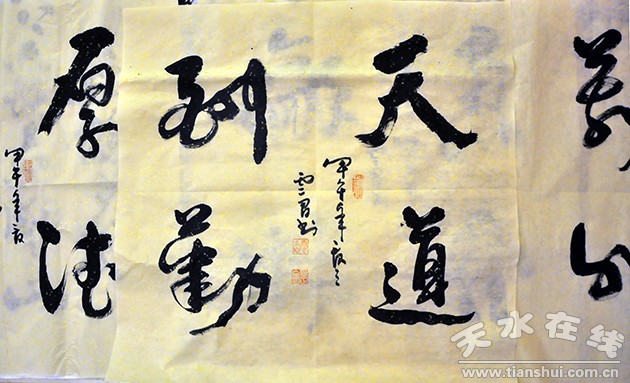 天道
酬勤
甲午年
厚德
甲午年
天水在线
www.tianshui.com.cn